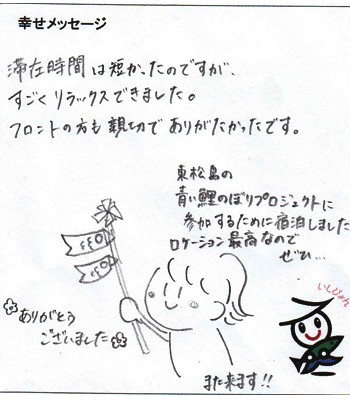 幸せメッセージ
滞在時間は短かったのですが、
すごくリラックスできました。
フロントの方も親切でありがたかったです。
東松島の
青い鯉のぼりプロジェクトに
参加するために宿泊しました
ロケーション最高なので
ぜひ…
ありがとう
ございました
いしぴょん
また来ます!!